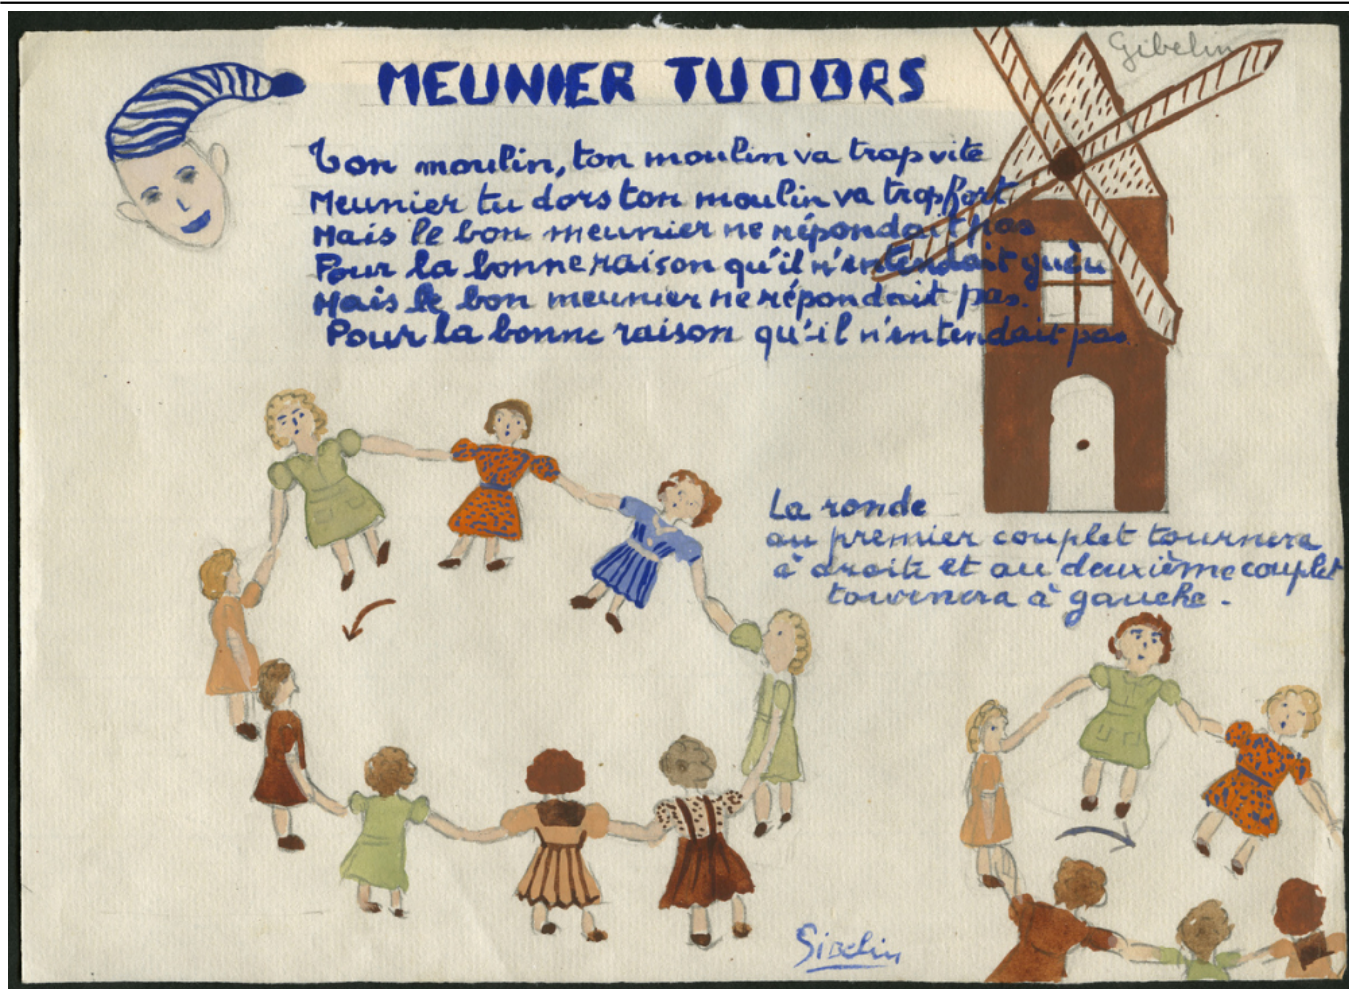 Gibelin
MEUNIER TU DORS
Ton moulin, ton moulin va trop vite
Meunier tu dors ton moulin va trop fort
Mais le bon meunier ne répondait pas
Pour la bonne raison qu'il n'entendait
Mais le bon meunier ne répondait pas.
Pour la bonne raison qu'il n'entendait pas
La ronde
au premier couplet tournera
à droite et au deuxième couplet
tournera à gauche.
Gibelin